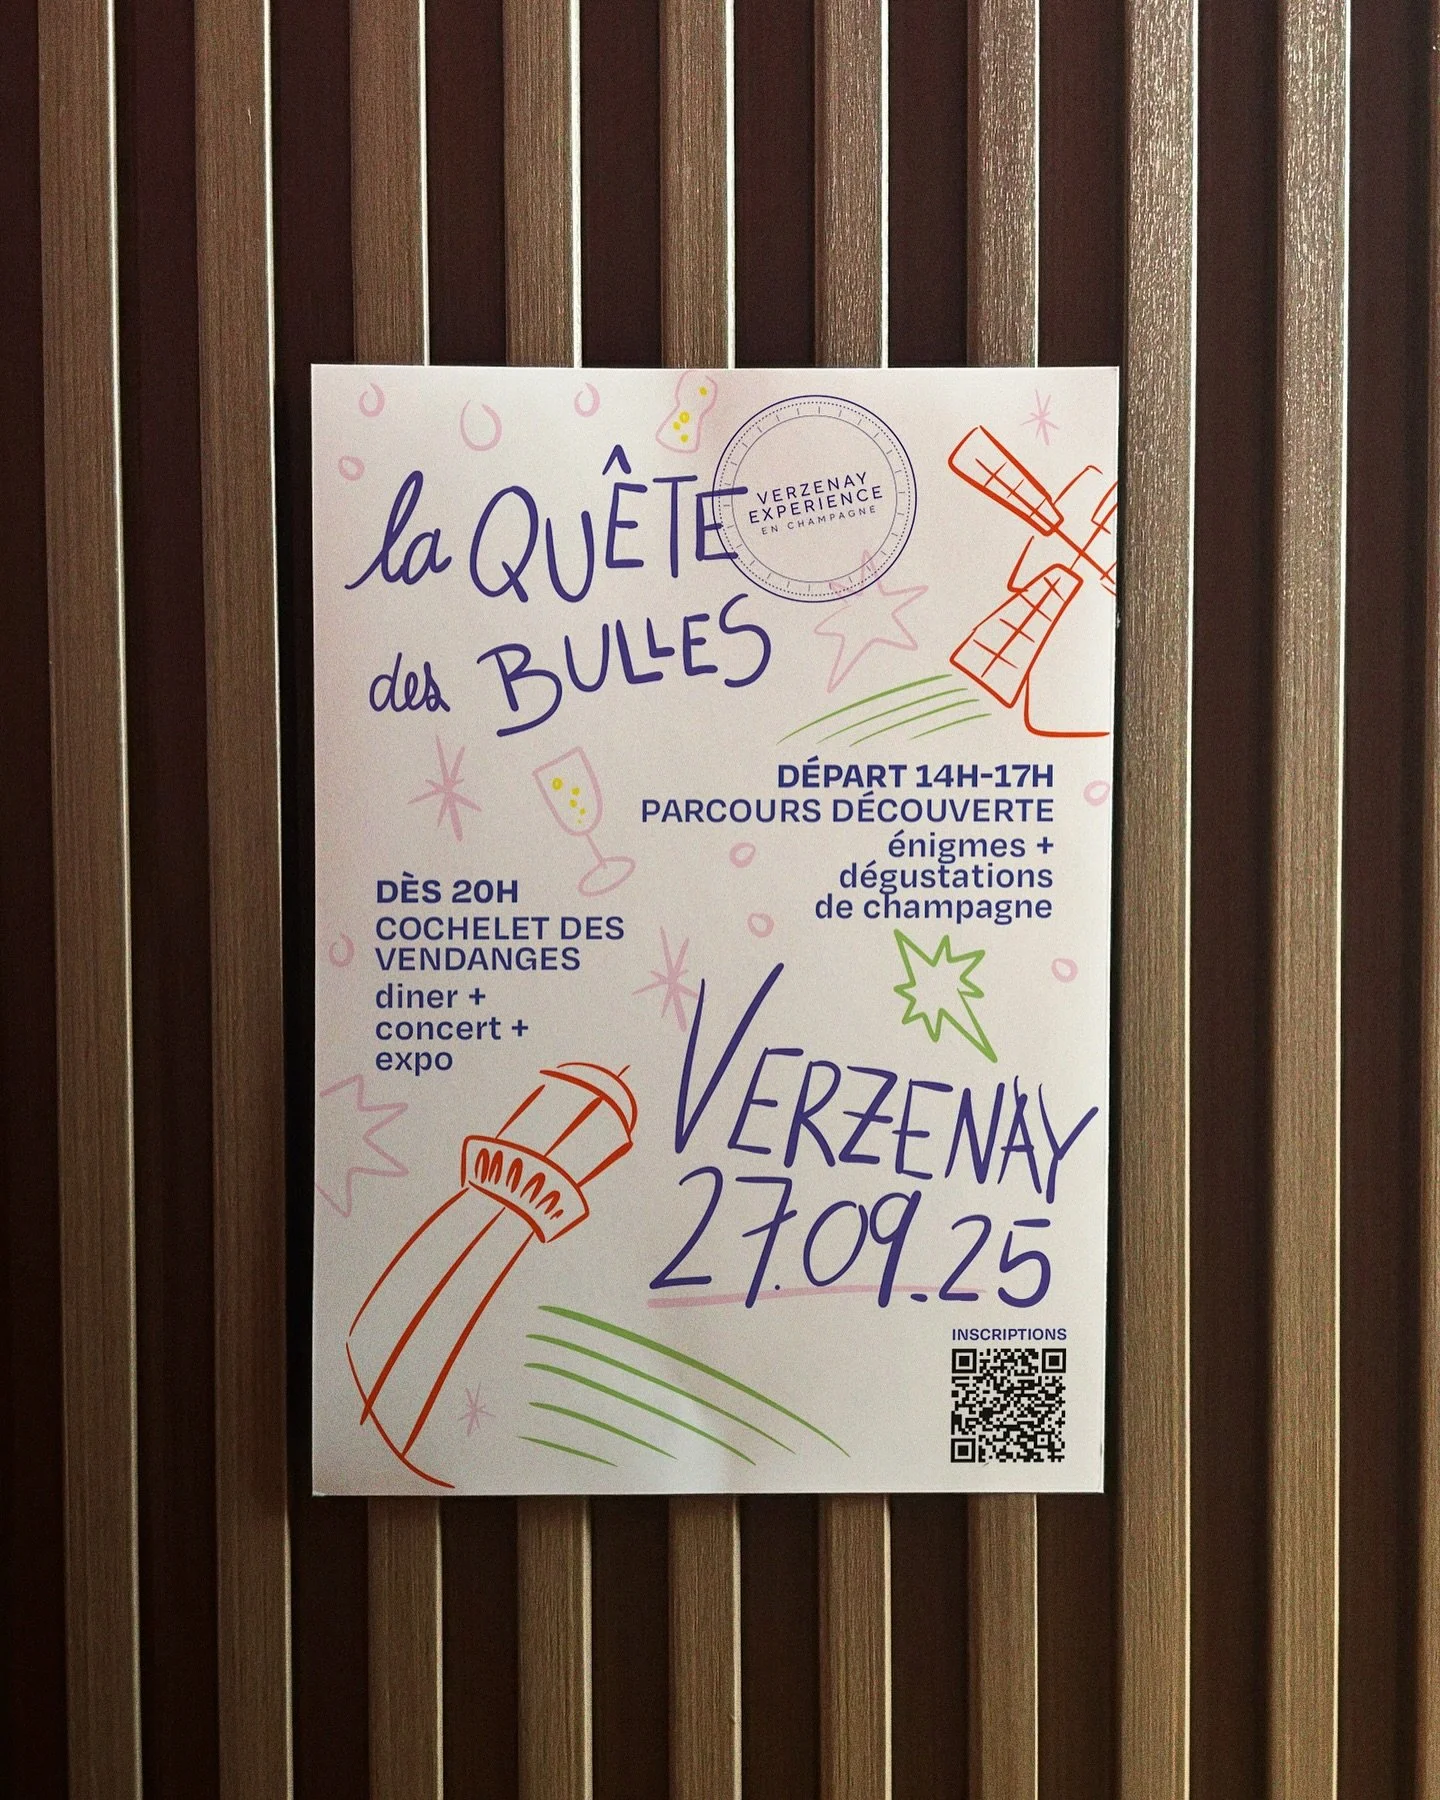 la QUÊTE
des BULLES
VERZENAY
EXPERIENCE
EN CHAMPAGNE
DÉPART 14H-17H
PARCOURS DÉCOUVERTE
énigmes +
dégustations
de champagne
DÈS 20H
COCHELET DES
VENDANGES
diner +
concert +
expo
VERZENAY
27.09.25
INSCRIPTIONS